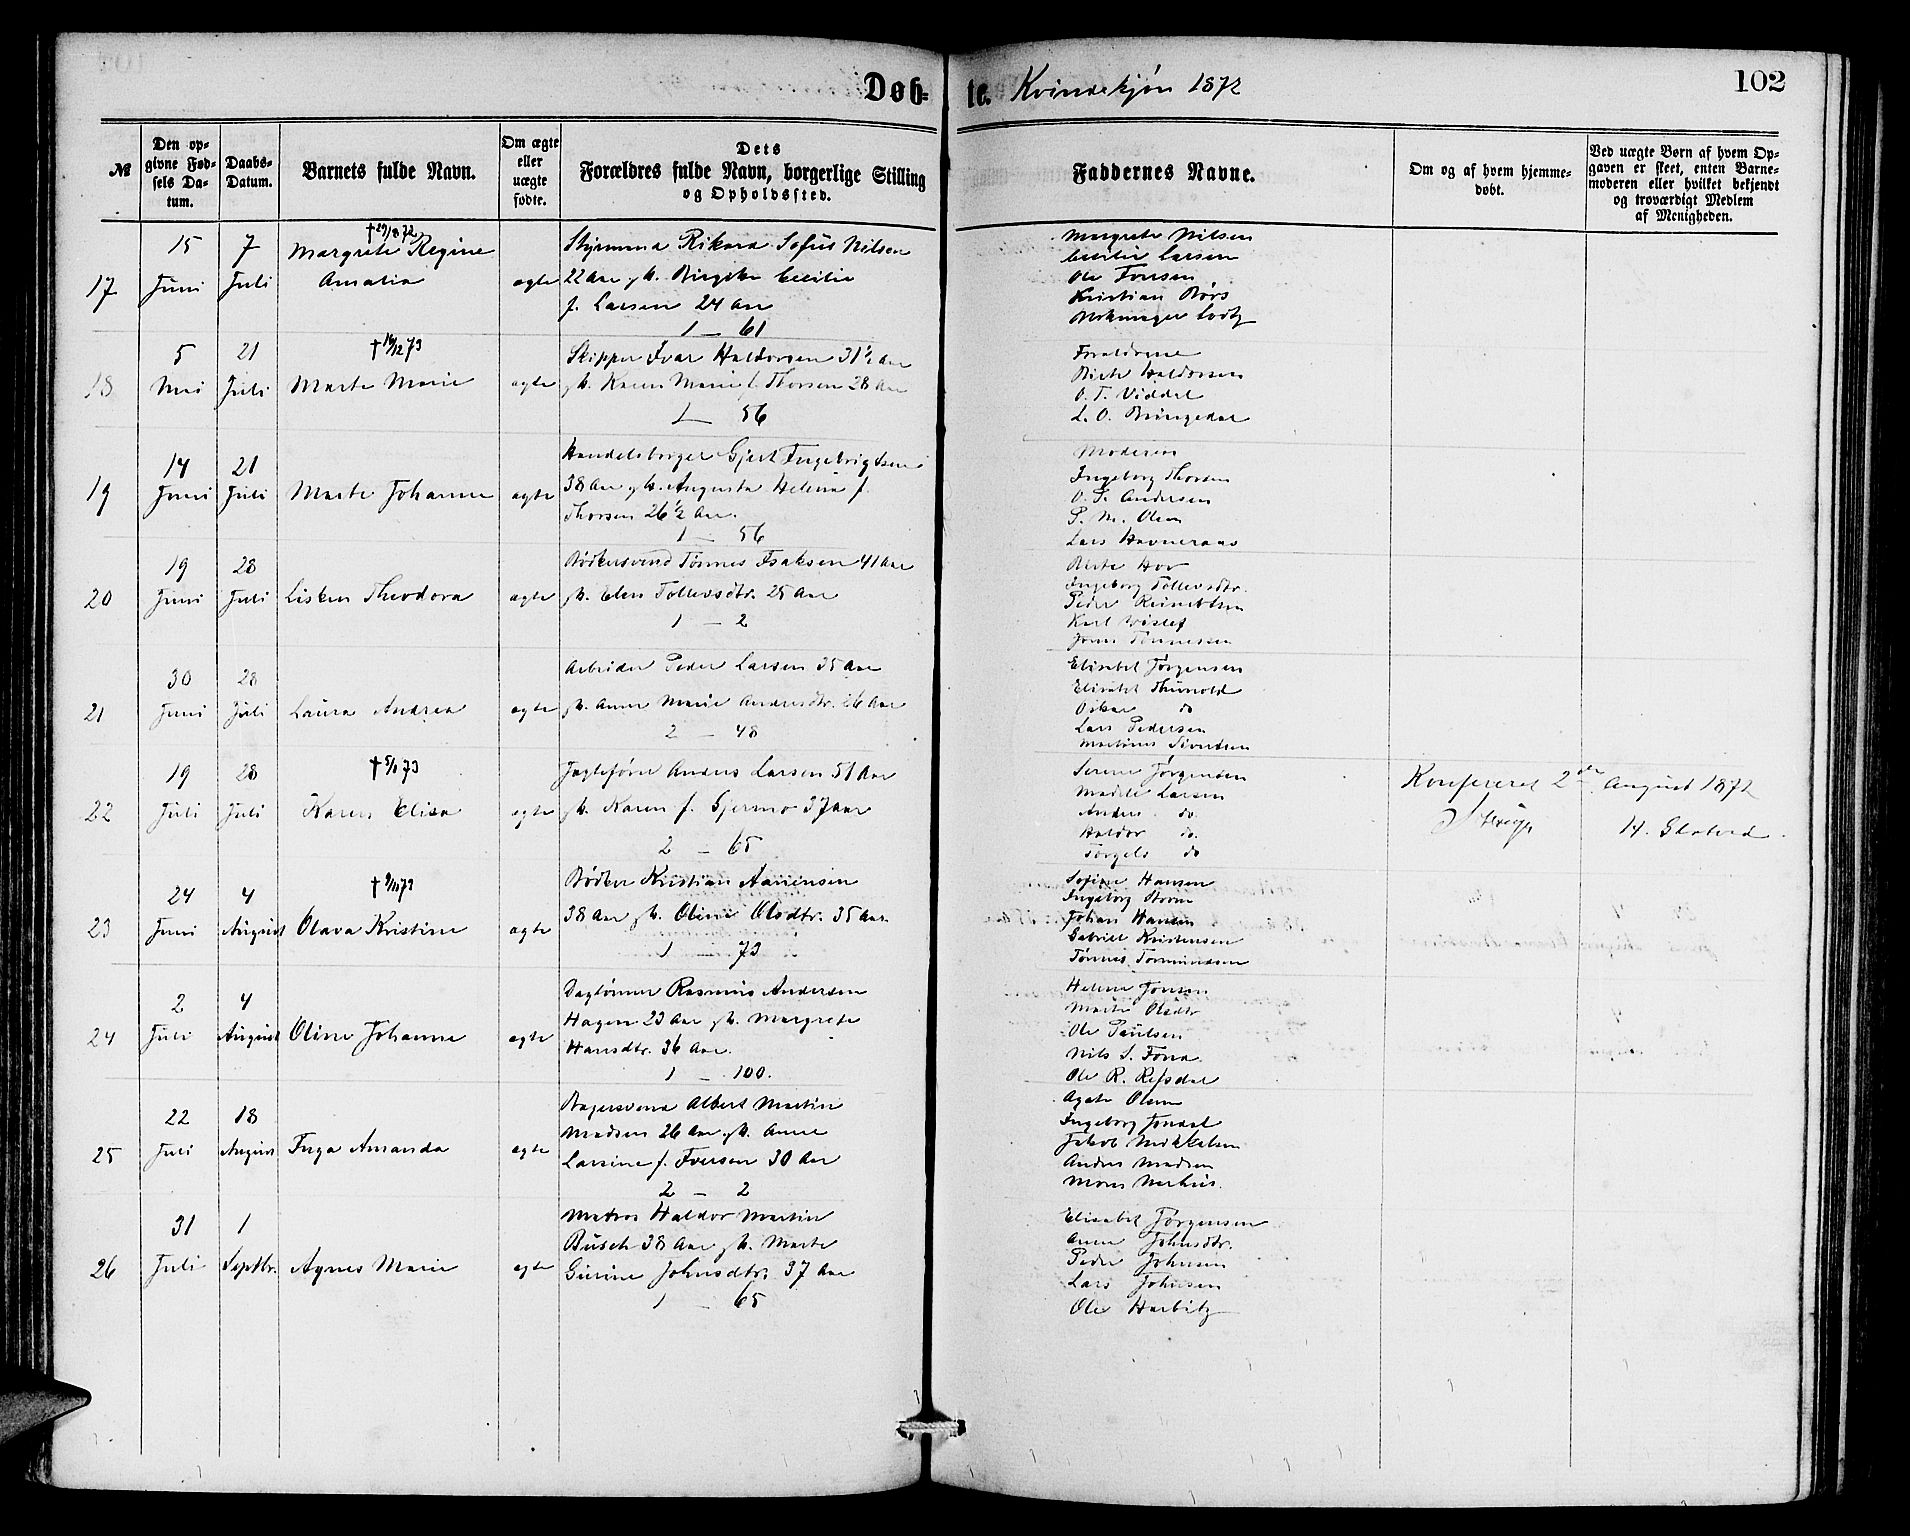 Døb-
te. Kvindekjøn 1872
102
№
Den op-
givne Fød-
sels Da-
tum.
Daabs-
Datum.
Barnets fulde Navn.
Om ægte
eller
uægte
fødte.
Dets
Forældres fulde Navn, borgerlige Stilling
og Opholdssted.
Faddernes Navne.
Om og af hvem hjemme-
døbt.
Ved uægte Børn af hvem Op-
gaven er skeet, enten Barne-
moderen eller hvilket bekjendt
og troværdigt Medlem
af Menigheden.
17
15
Juni
7
Juli
Margrete Regine
Amalia
ægte
Styrmand Rikard Sofus Nilsen
22 Aar gk. Birgitte Cecilie
f. Larsen 24 Aar
1 — 61
Margrete Nilsen
Cecilie Larsen
Ole Tonsen
Kristian Børs
18
5
Mai
21
Juli
† 16/12 73
Marte Marie
ægte
Skipper Ivar Haldorsen 31½ Aar
gk. Karen Marie f. Thorsen 28 Aar
1 — 56
Forældrene
Birte Haldorsen
O. T. Viddal
L. O. Bringedal
19
14
Juni
21
Juli
Marte Johanne
ægte
Handelsborger Gjert Ingebrigtsen
38 Aar gk. Augusta Helena f.
Thorsen 26½ Aar.
1 — 56
Moderen
Ingeborg Thorsen
O. S. Andersen
P. M. Olsen
Lars Havneraas
20
19
Juni
28
Juli
Lisken Theodora
ægte
Bødkersvend Tønnes Isaksen 41 Aar
gk. Elen Tollevsdtr. 25 Aar
1 — 2
Berte Hov
Ingeborg Tollevsdtr.
Peder
Karl
Jonas Tønnessen
21
30
Juni
28
Juli
Laura Andrea
ægte
Arbeider Peder Larsen 35 Aar
gk. Anne Marie Andersdtr. 26 Aar
2 — 48
Elisabet Jørgensen
Elisabet Thunold
Oskar do
Lars Pedersen
Martinus Sivertsen
22
19
Juli
28
Juli
† 5/1 73
Karen Elisa
ægte
Jagtefører Anders Larsen 51 Aar
gk. Karen f. Gjermo 37 Aar
2 — 65
Serine Jørgensen
Madele Larsen
Anders do.
Haldor do.
Torgels do
Konfereret 2den August 1872
23
24
Juni
4
August
† 9/11 73
Olava Kristine
ægte
Bødker Kristian Aanensen
38 Aar gk. Oline Olsdtr. 35 Aar.
1 — 73
Sofine Hansen
Ingeborg Strøm
Johan Hansen
Gabriel Kristensen
Tønnes Tormundsen
24
2
Juli
4
August
Oline Johanne
ægte
Dagløнner Rasmus Andersen
Hagen 23 Aar gk. Margrete
Hansdtr. 36 Aar.
1 — 100.
Helene Jonsen
Marte Olsdtr
Ole Paulsen
Nils S. Fona.
Ole R. Refsdal
25
22
Juli
18
August
Inga Amanda
ægte
Bagersvend Albert Martin
Madsen 26 Aar gk. Anne
Larsine f. Iversen 30 Aar
2 — 2
Agate Olsen
Ingeborg Jondal
Jakob Mikkelsen
Anders Madsen
26
31
Juli
1
Septbr.
Agnes Marie
ægte
Matros Haldor Martin
Busch 38 Aar gk. Marte
Gurine Johnsdtr. 37 Aar
1 — 65
Elisabet Jørgensen
Anne Johnsdtr.
Peder Johnsen
Lars Johnsen
Ole Harbitz